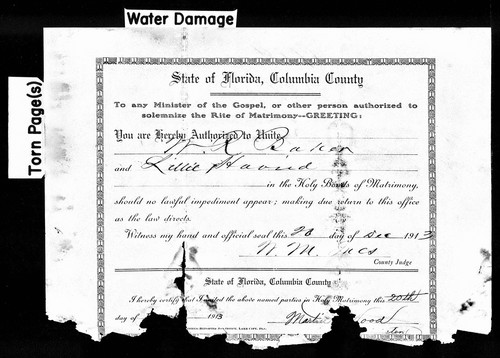 Water Damage
Torn Page(s)
State of Florida, Columbia County
To any Minister of the Gospel, or other person authorized to
solemnize the Rite of Matrimony--GREETING:
You are Hereby Authorized to Unite
W R Baker
and Lillie
in the Holy Bonds of Matrimony,
should no lawful impediment appear; making due return to this office
as the law directs.
Witness my hand and official seal this 20 day of Dec 1913
W. M. Ives
County Judge
State of Florida, Columbia County
I hereby certify that I united the above named parties in Holy Matrimony this 20th
day of 1913